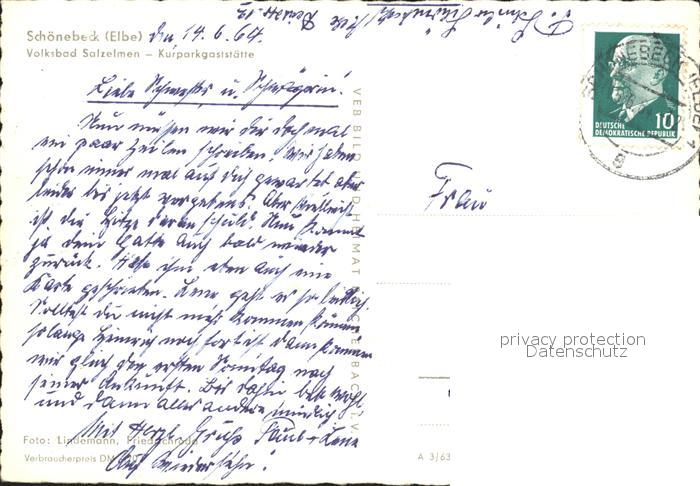 Schönebeck (Elbe) den 14.6.64.
Volksbad Salzelmen – Kurparkgaststätte
Liebe u. Schwägerin!
Nun müssen wir dir doch mal
ein paar Zeilen schreiben. Wir haben
schon immer mal auf dich gewartet aber
leider bis jetzt vergebens. Aber vielleicht
ist die Hitze daran Schuld. Nun kommt
ja dein Gatte auch bald wieder
zurück. Habe ihm eben auch eine
Karte geschrieben. Lene geht es so leidlich.
Solltest du nicht mehr kommen können
solange Heinrich noch fort ist dann kommen
wir gleich den ersten Sonntag nach
seiner Ankunft. Bis dahin lebt wohl
und dann alles andere mündlich
Mit Herzl. Gruß Paul + Lene
Auf Wiedersehn!
Foto: Lindemann, Friedrichroda
Verbraucherpreis DM
VEB BILD UND HEIMAT REICHENBACH I. V.
A 3/63
Frau
10
DEUTSCHE
DEMOKRATISCHE REPUBLIK
privacy protection
Datenschutz